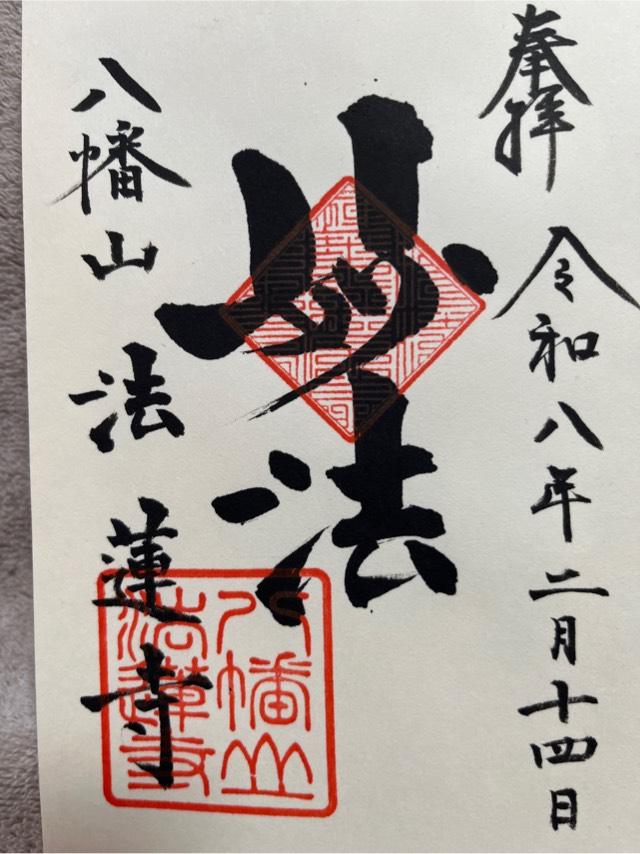 奉拝 令和八年二月十四日
妙法
八幡山 法蓮寺
八幡山
法蓮寺